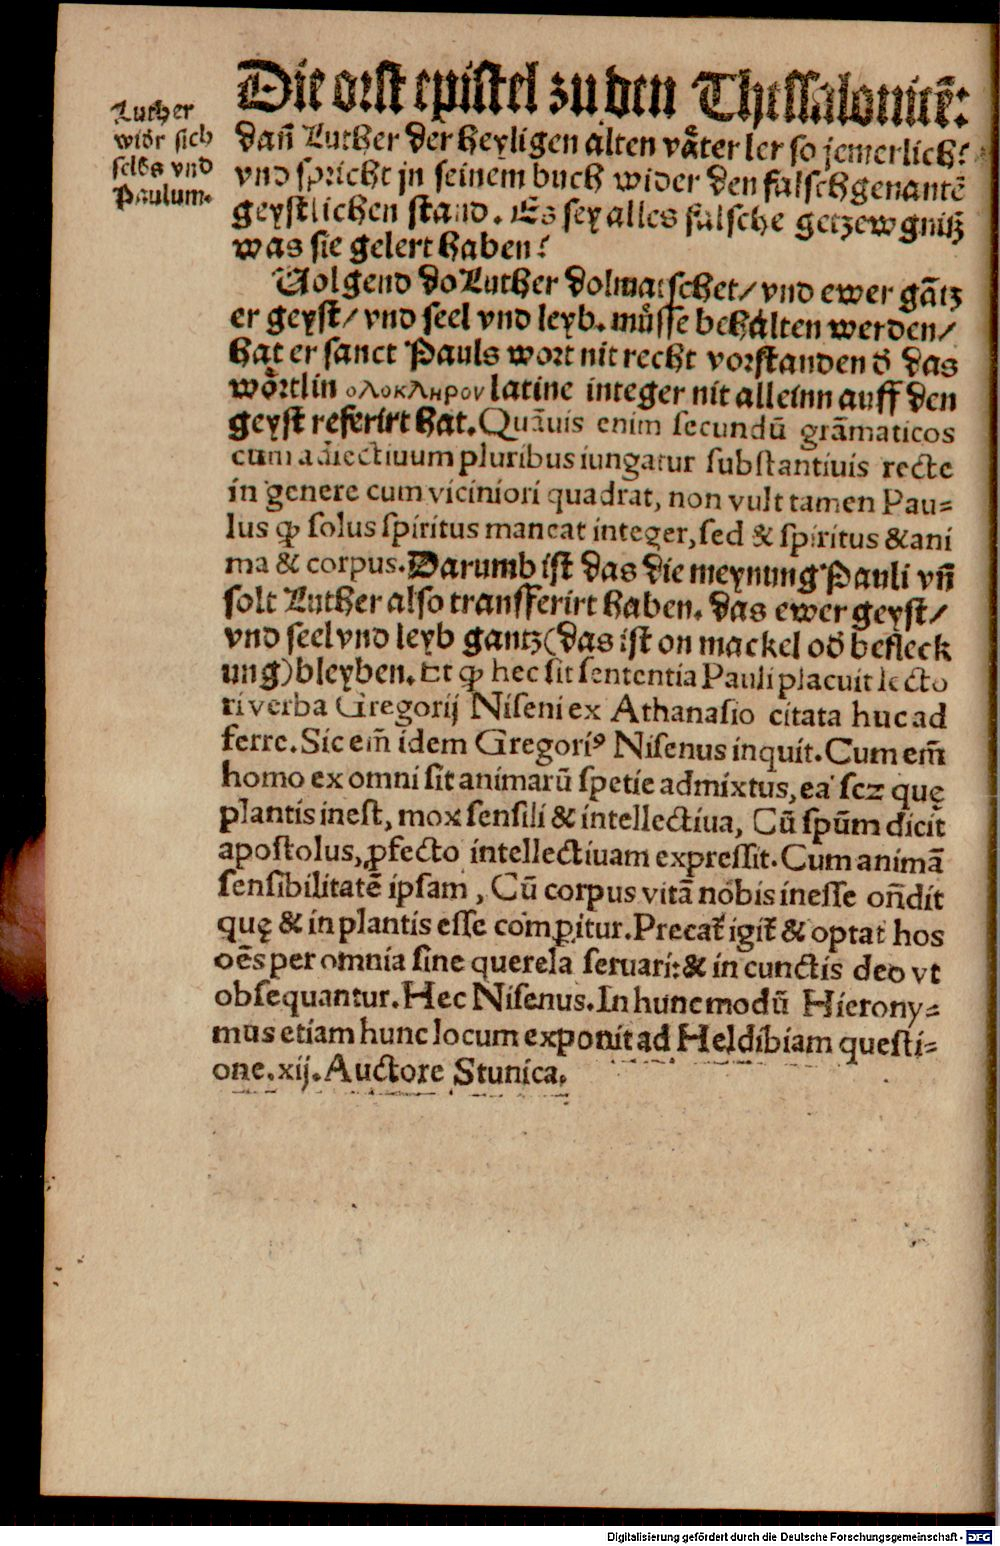 Die erst epistel zu den Thessalonicē:
Luther
widr sich
selbs vnd
Paulum.
dañ Luther der heyligen alten våter ler so jemerlich?
vnd spricht jn seinem buch wider den falschgenantē
geystlichen stand. Es sey alles falsche getzewgniß
was sie gelert haben?
Volgend do Luther dolmatschet/ vnd ewer gātz
er geyst/ vnd seel vnd leyb. müsse behalten werden/
hat er sanct Pauls wort nit recht vorstanden d̄ das
wörtlin ολοκληρον latine integer nit alleinn auff den
geyst referirt hat. Quāuis enim secundū grāmaticos
cum adiectiuum pluribus iungatur substantiuis recte
in genere cum viciniori quadrat, non vult tamen Pau=
lus ꝙ solus spiritus maneat integer, sed & spiritus & ani
ma & corpus. Darumb ist das die meynung Pauli vñ
solt Luther also transferirt haben. das ewer geyst/
vnd seel vnd leyb gantz (das ist on mackel od̄ befleck
ung) bleyben. Et ꝙ hec sit sententia Pauli placuit lecto
ri verba Gregorij Niseni ex Athanasio citata huc ad
ferre. Sic em̄ idem Gregoriꝰ Nisenus inquit. Cum em̄
homo ex omni sit animarū spetie admixtus, ea scz quę
plantis inest, mox sensili & intellectiua, Cū spūm dicit
apostolus, ꝓfecto intellectiuam expressit. Cum animā
sensibilitatē ipsam, Cū corpus vitā nobis inesse oñdit
quę & in plantis esse comꝑitur. Precat̄ igit̄ & optat hos
oēs per omnia sine querela seruari: & in cunctis deo vt
obsequantur. Hec Nisenus. In hunc modū Hierony=
mus etiam hunc locum exponit ad Heldibiam questi=
one. xij. Auctore Stunica.
Digitalisierung gefördert durch die Deutsche Forschungsgemeinschaft - DFG